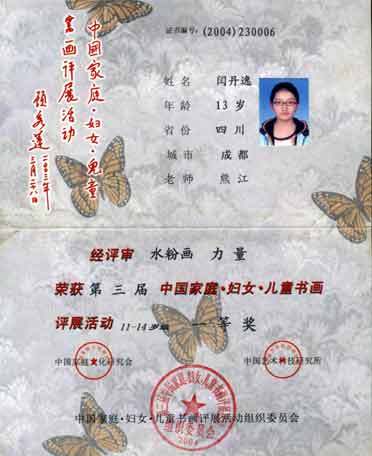 证书编号：(2004)230006
中国家庭·妇女·儿童
书画评展活动
姓名 闫丹逸
年龄 13岁
省份 四川
城市 成都
老师 熊江
经评审 水粉画 力量
荣获第三届 中国家庭·妇女·儿童书画
评展活动 11-14岁组 一等奖
中国家庭文化研究会
中国艺术科技研究所
中国家庭·妇女·儿童书画评展活动组织委员会
组织委员会
2004